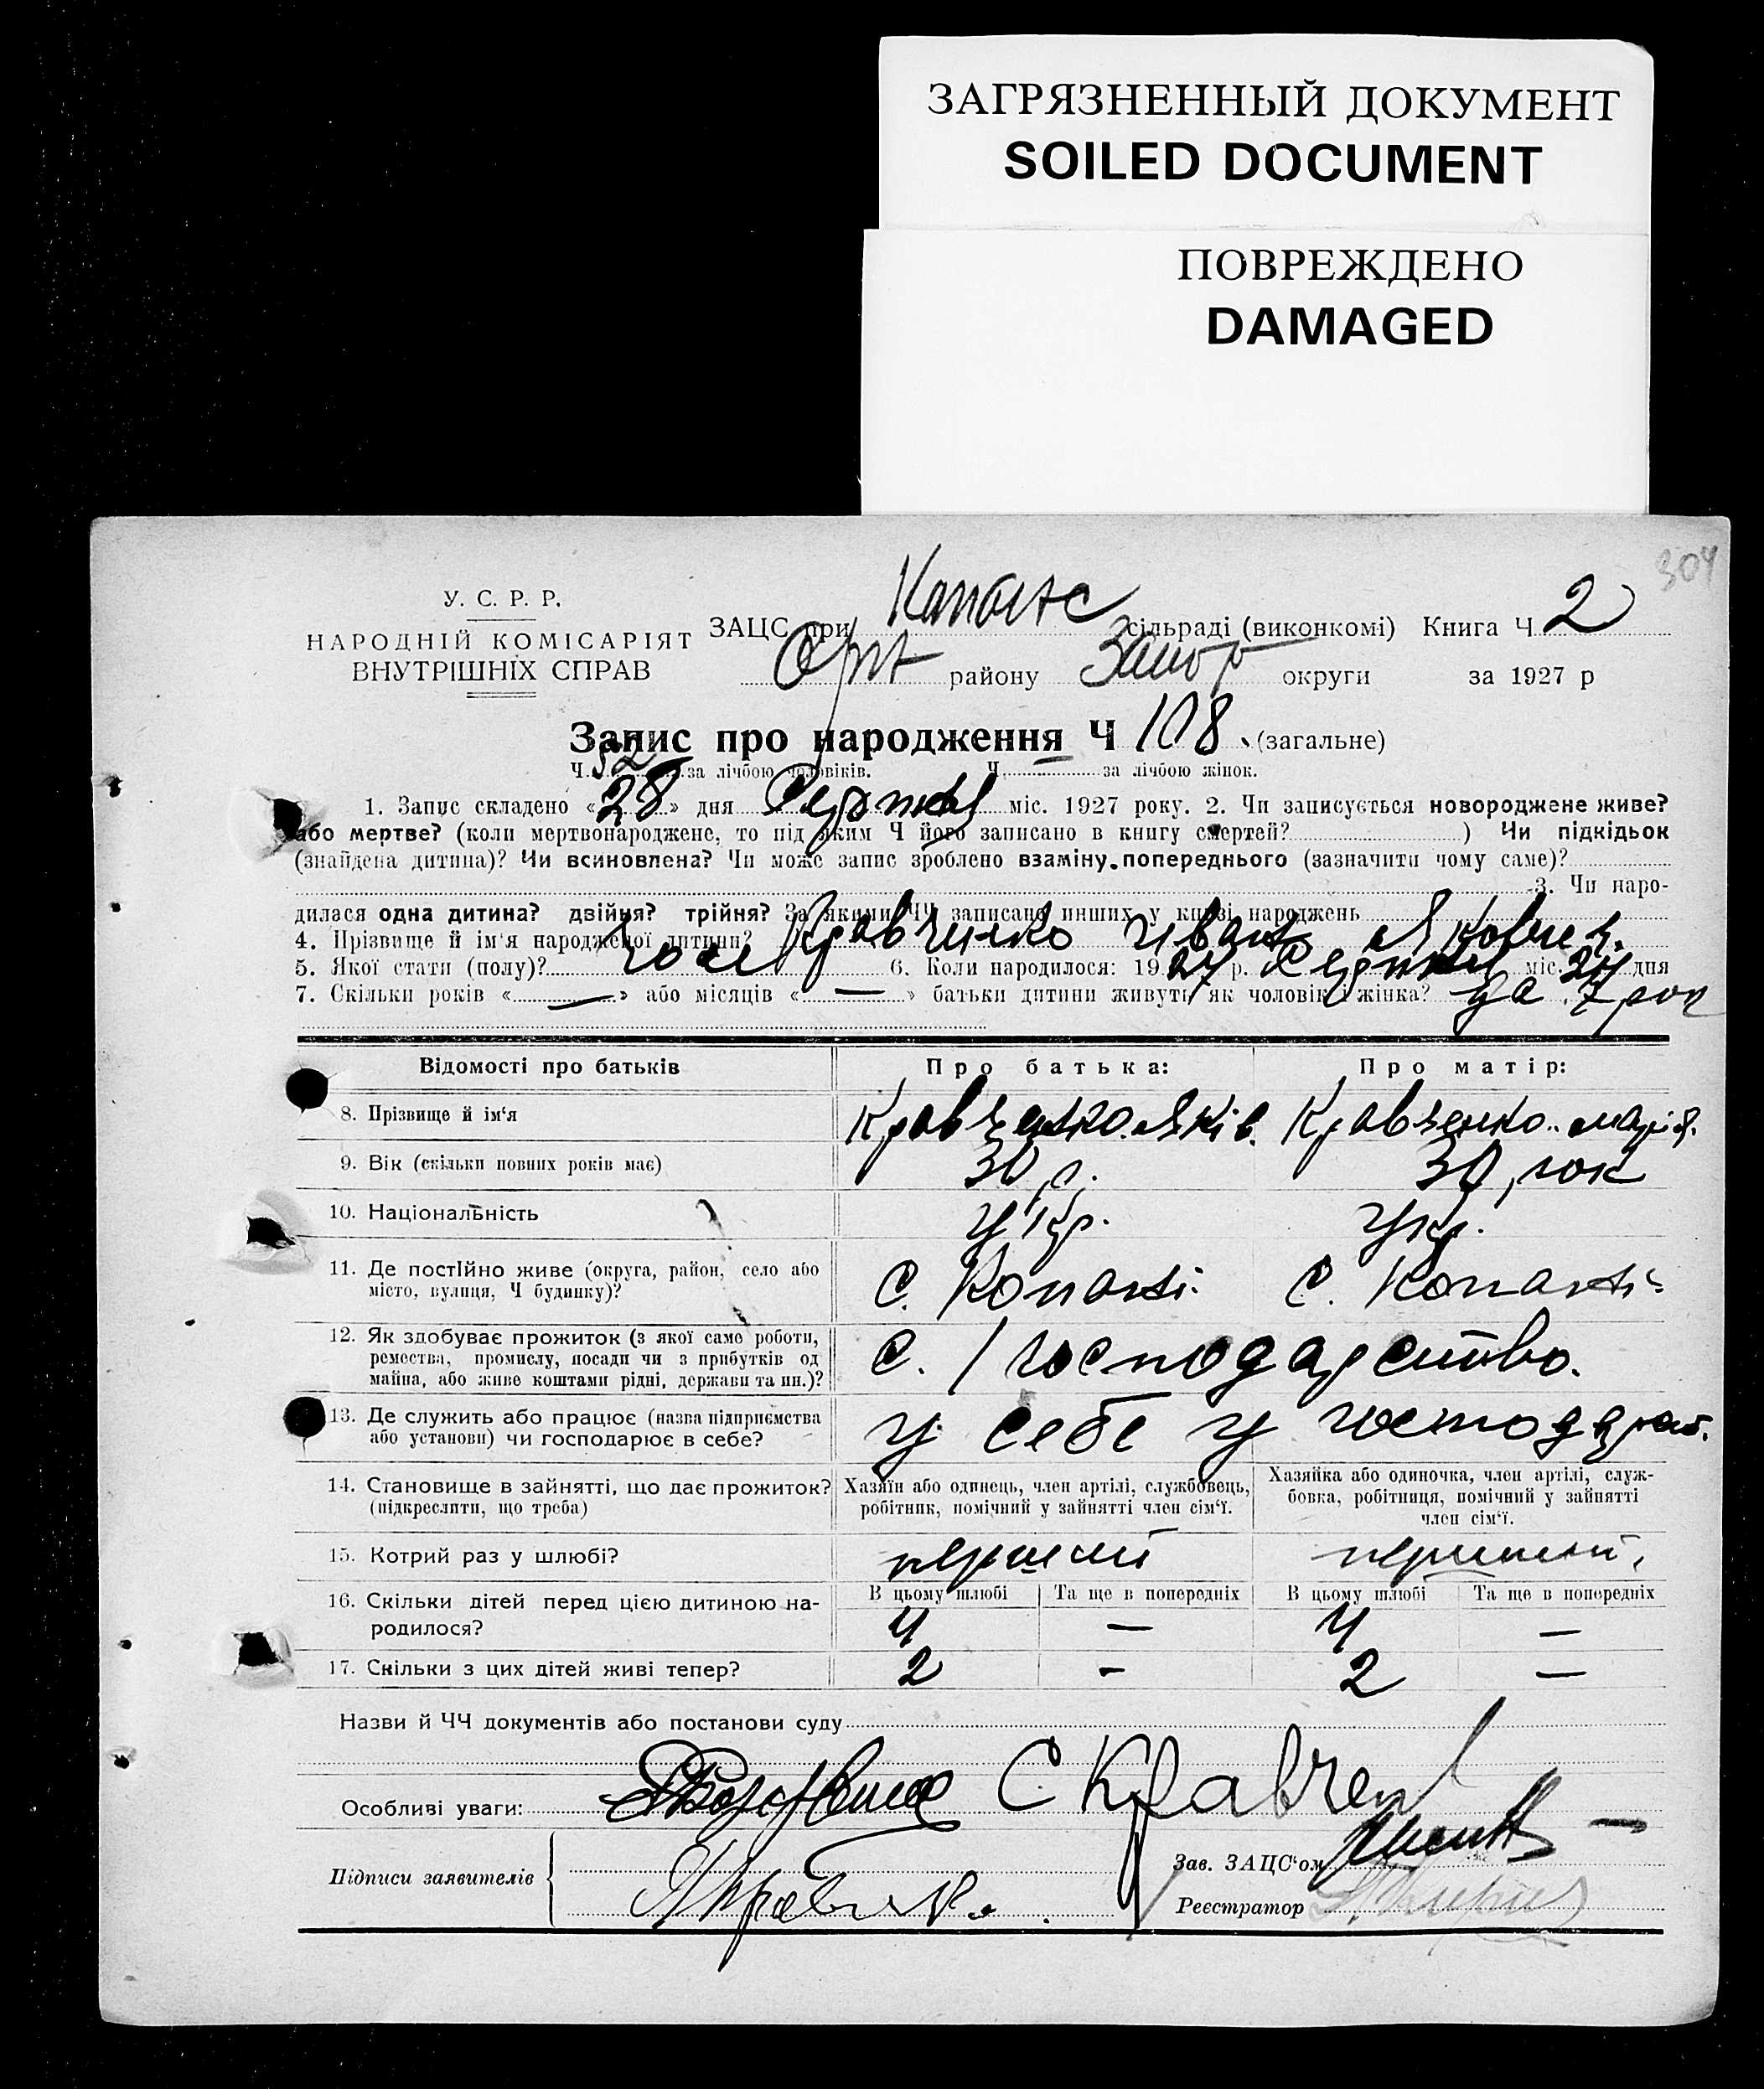 ЗАГРЯЗНЕННЫЙ ДОКУМЕНТ
SOILED DOCUMENT
ПОВРЕЖДЕНО
DAMAGED
304
У. С. Р. Р.
НАРОДНІЙ КОМІСАРІЯТ
ВНУТРІШНІХ СПРАВ
ЗАЦС при сільраді (виконкомі) Книга Ч 2
району Запор округи за 1927 р
Запис про народження Ч 108. (загальне)
Ч. 52 за лічбою чоловіків. Ч. за лічбою жінок.
1. Запис складено «28» дня Серпня міс. 1927 року. 2. Чи записується новороджене живе?
або мертве? (коли мертвонароджене, то під яким Ч його записано в книгу смертей? ) Чи підкідьок
(знайдена дитина)? Чи всиновлена? Чи може запис зроблено взаміну попереднього (зазначити чому саме)?
3. Чи наро-
дилася одна дитина? двійня? трійня? За якими ЧЧ записано инших у книзі народжень
4. Прізвище й ім'я народженої дитини? Кравченко Иван Якович.
5. Якої стати (полу)? чол 6. Коли народилося: 1927 р. Серпня міс. 24 дня
7. Скільки років « — » або місяців « — » батьки дитини живуть як чоловік і жінка? да 7 рок
Відомості про батьків Про батька: Про матір:
8. Прізвище й ім'я Кравченко Яків. Кравченко Марія.
9. Вік (скільки повних років має) 30 р. 30 рок
10. Національність Укр. Укр.
11. Де постійно живе (округа, район, село або
місто, вулиця, Ч будинку)? С. Копані. С. Копані
12. Як здобуває прожиток (з якої само роботи,
ремества, промислу, посади чи з прибутків од
майна, або живе коштами рідні, держави та ин.)? С. / господарство.
13. Де служить або працює (назва підприємства
або установи) чи господарює в себе? у себе у господарст.
14. Становище в зайнятті, що дає прожиток?
(підкреслити, що треба)
Хазяїн або одинець, член артілі, службовець,
робітник, помічний у зайнятті член сім'ї.
Хазяйка або одиночка, член артілі, служ-
бовка, робітниця, помічний у зайнятті
член сім'ї.
15. Котрий раз у шлюбі? перший перший,
16. Скільки дітей перед цією дитиною на-
родилося?
В цьому шлюбі Та ще в попередніх В цьому шлюбі Та ще в попередніх
4 — 4 —
17. Скільки з цих дітей живі тепер? 2 - 2 —
Назви й ЧЧ документів або постанови суду
Особливі уваги: С Кравчен
Підписи заявителів
Зав. ЗАЦС'ом
Реєстратор